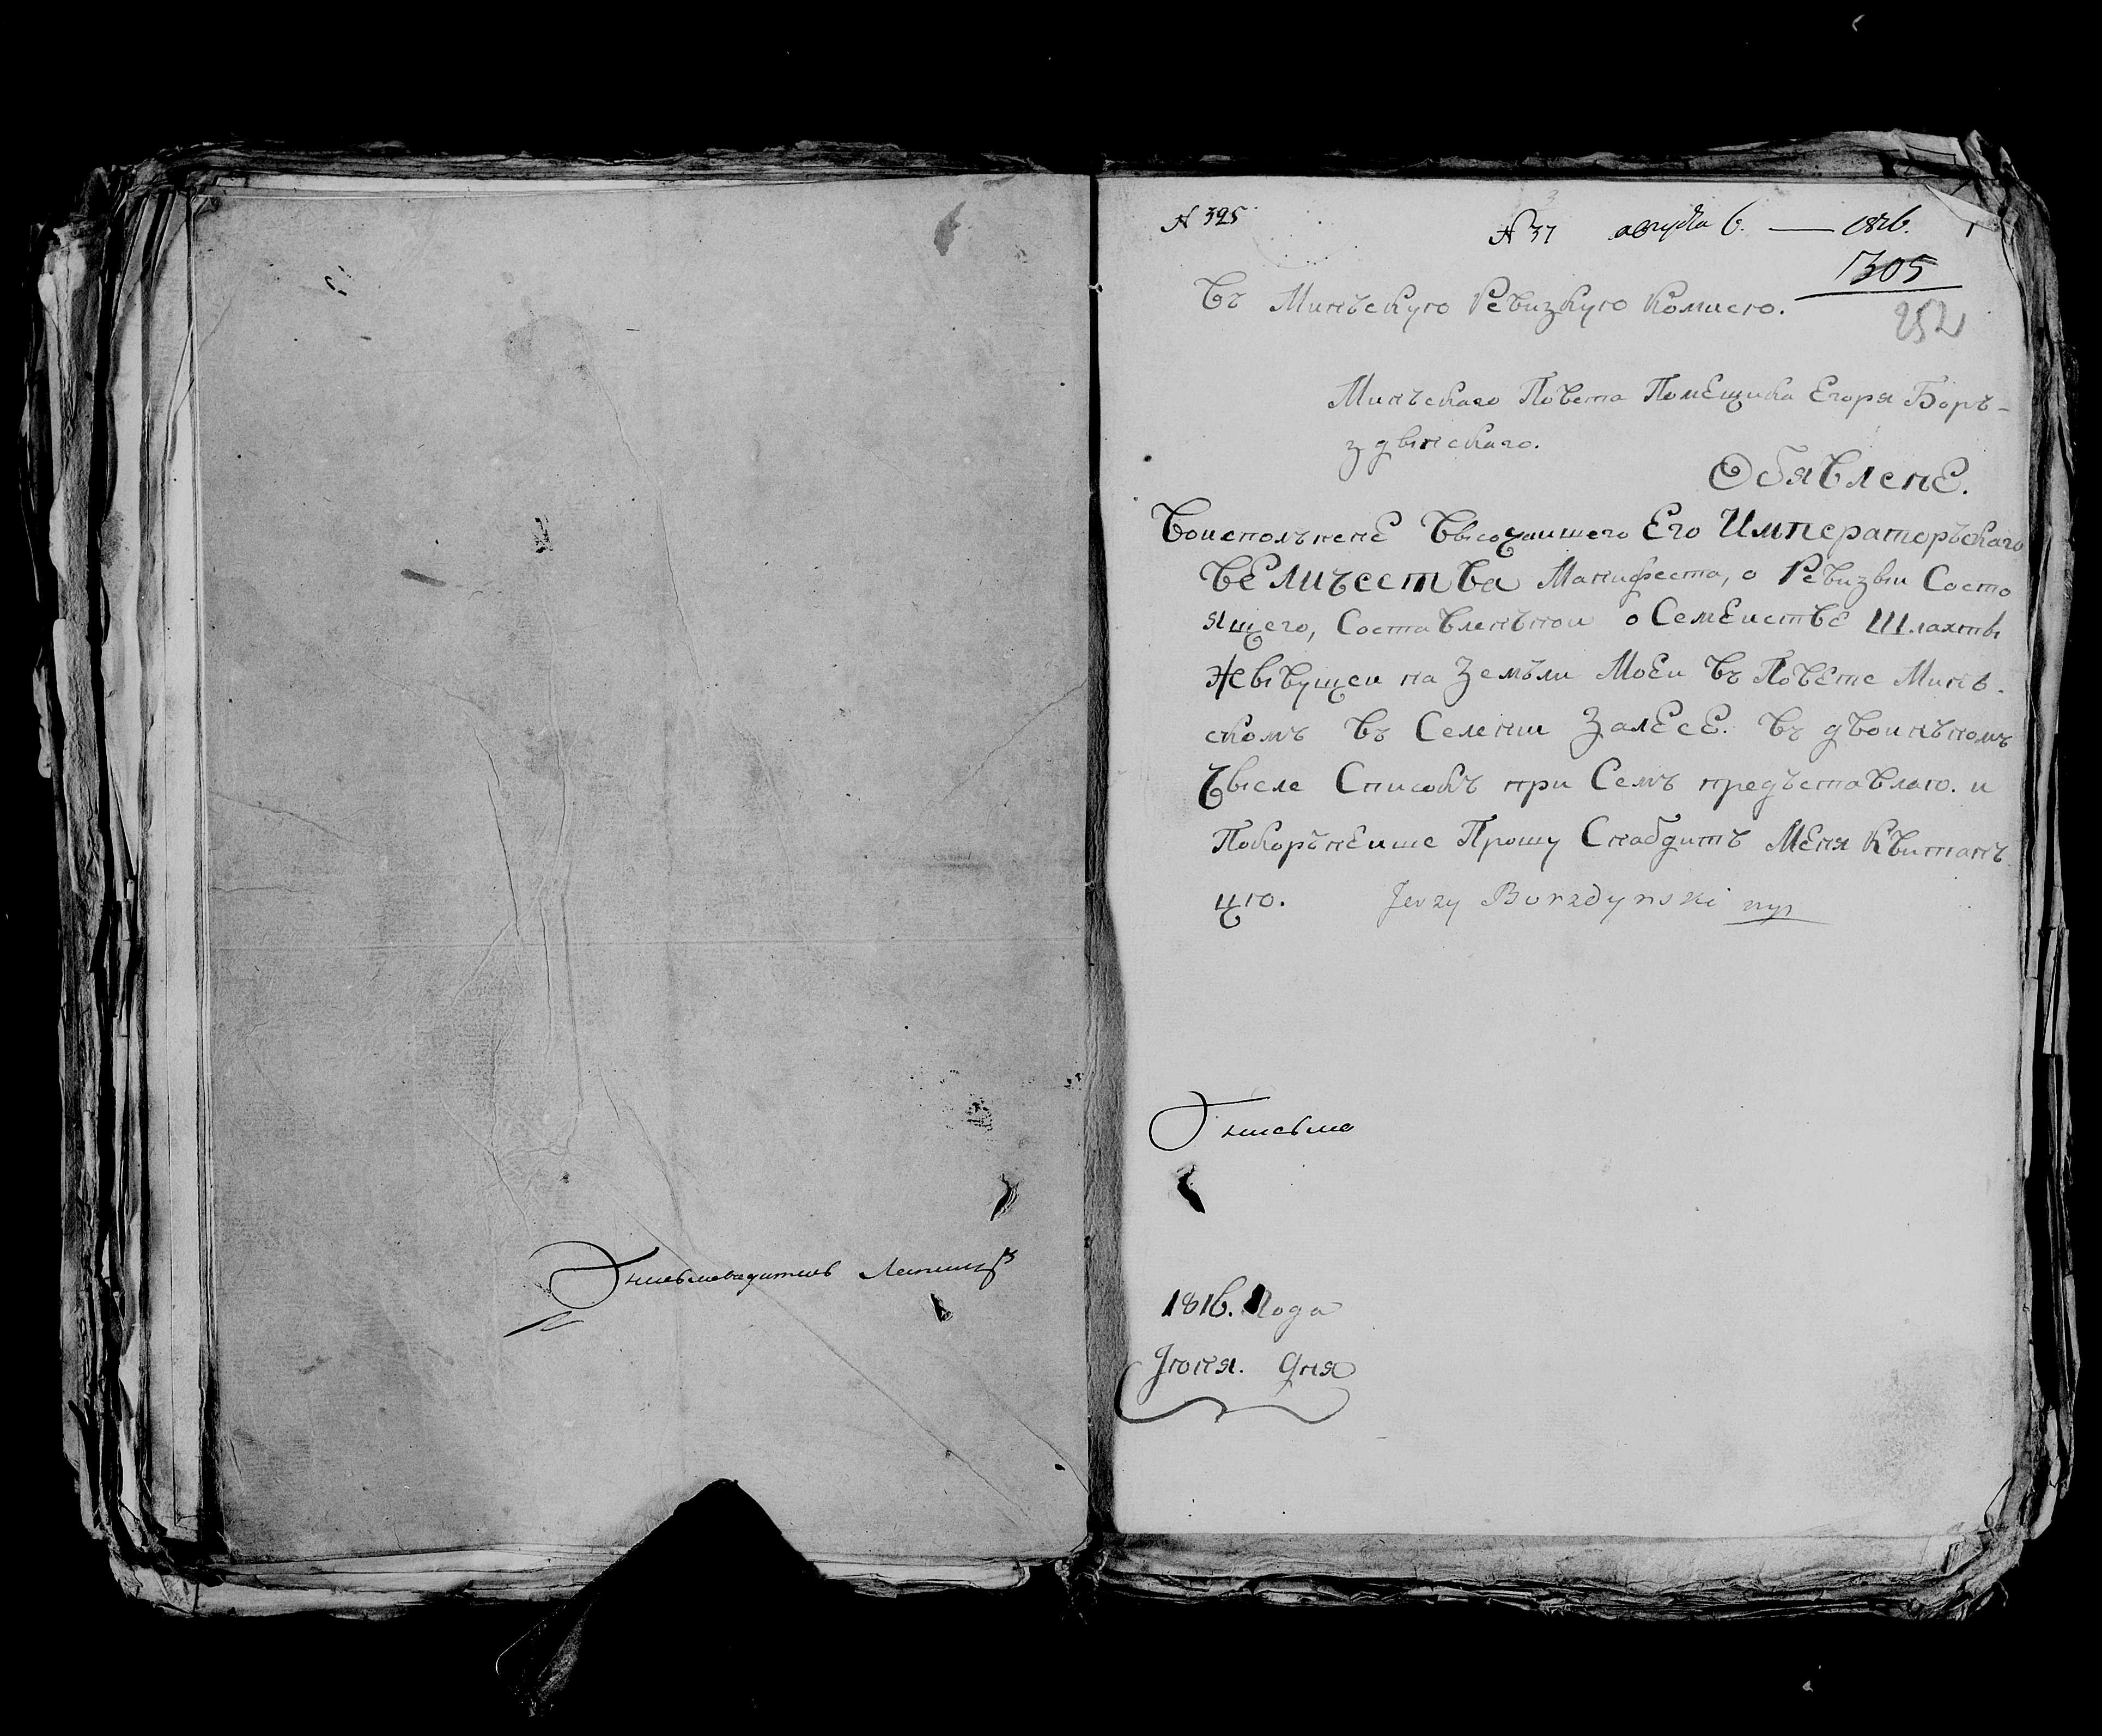 Писмоводитель
N 325
N 37 августа 6. — 1816.
1305
252
Въ Минъскую Ревизкую Комисю.
Минъскаго Повета Помещика Егоря Боръ-
здвінскаго.
Обявлене.
Воисполънене Высочаишего Его Императоръскаго
Величества Манифеста, о Ревизыи Состо
ящего, Составленънои о Семеистве Шлахты
Жывущеи на Земъли Моеи въ Повете Минъ-
скомъ въ Селении Залесе. въ двоинъномъ
Чысле Списокъ при Семъ предъставлаю. и
Покорънеише Прошу Снабдить Меня Квитанъ
цыю. Jerzy Borzdynski mp
Писмо
1816. Года
Июня. Дня